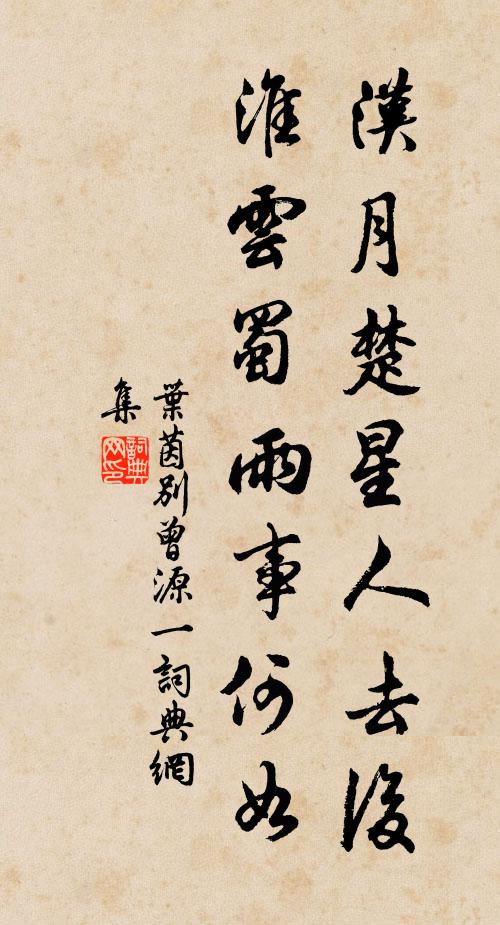 漢月楚星人去後
淮雲蜀雨事何如
葉茵別曾源一詞典網
集
詞典
网印